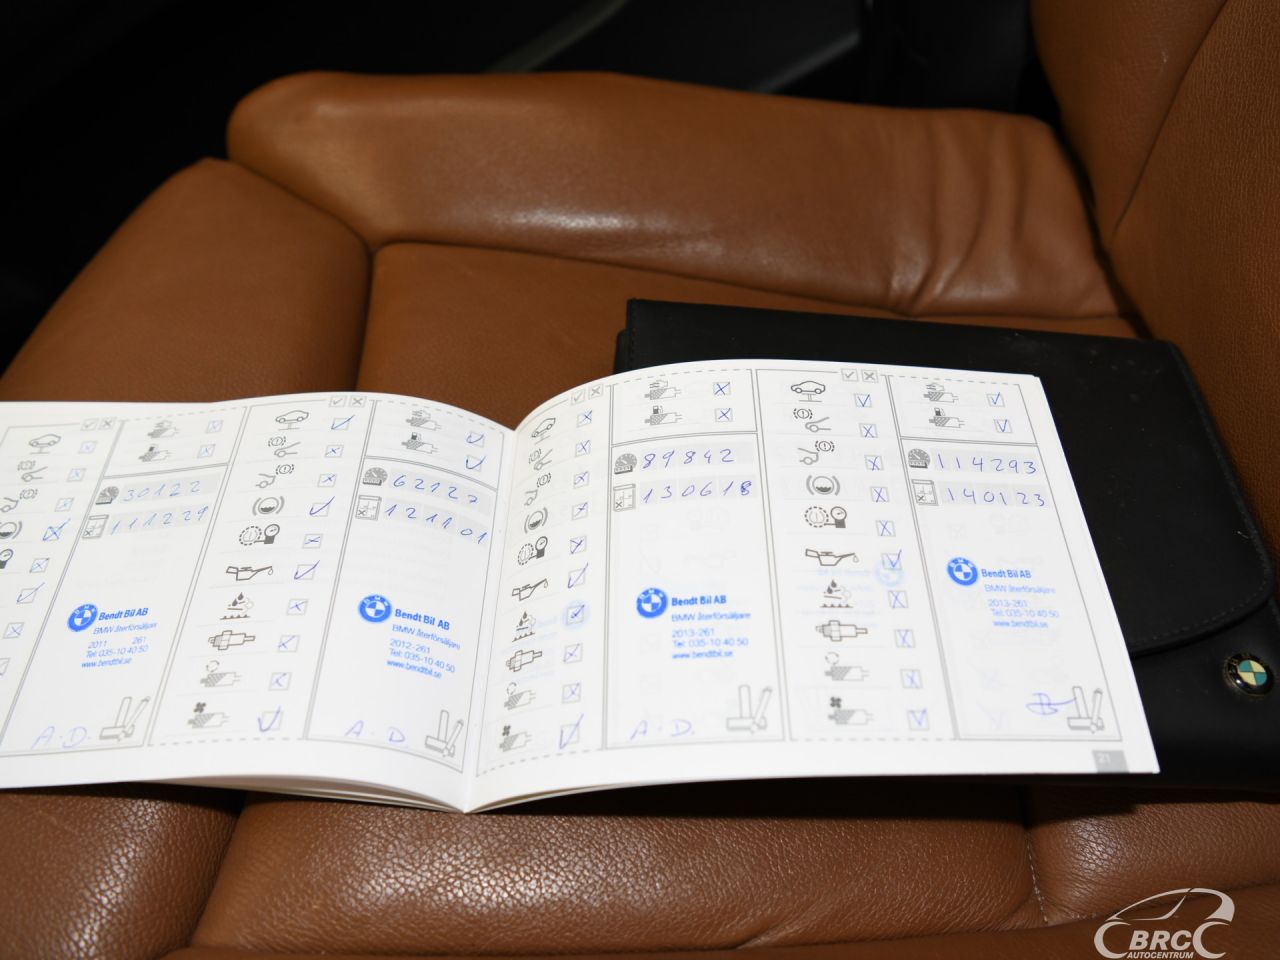 30122
111229
Bendt Bil AB
BMW återförsäljare
2011 261
Tel: 035-10 40 50
www.bendtbil.se
A.D.
62127
121101
Bendt Bil AB
BMW återförsäljare
2012-261
Tel: 035-10 40 50
www.bendtbil.se
A.D.
89842
130618
Bendt Bil AB
BMW återförsäljare
2013-261
Tel: 035-10 40 50
www.bendtbil.se
A.D.
114293
140123
Bendt Bil AB
2013-261
Tel: 035-10 40 50
www.bendtbil.se
21
BRC
AUTOCENTRUM